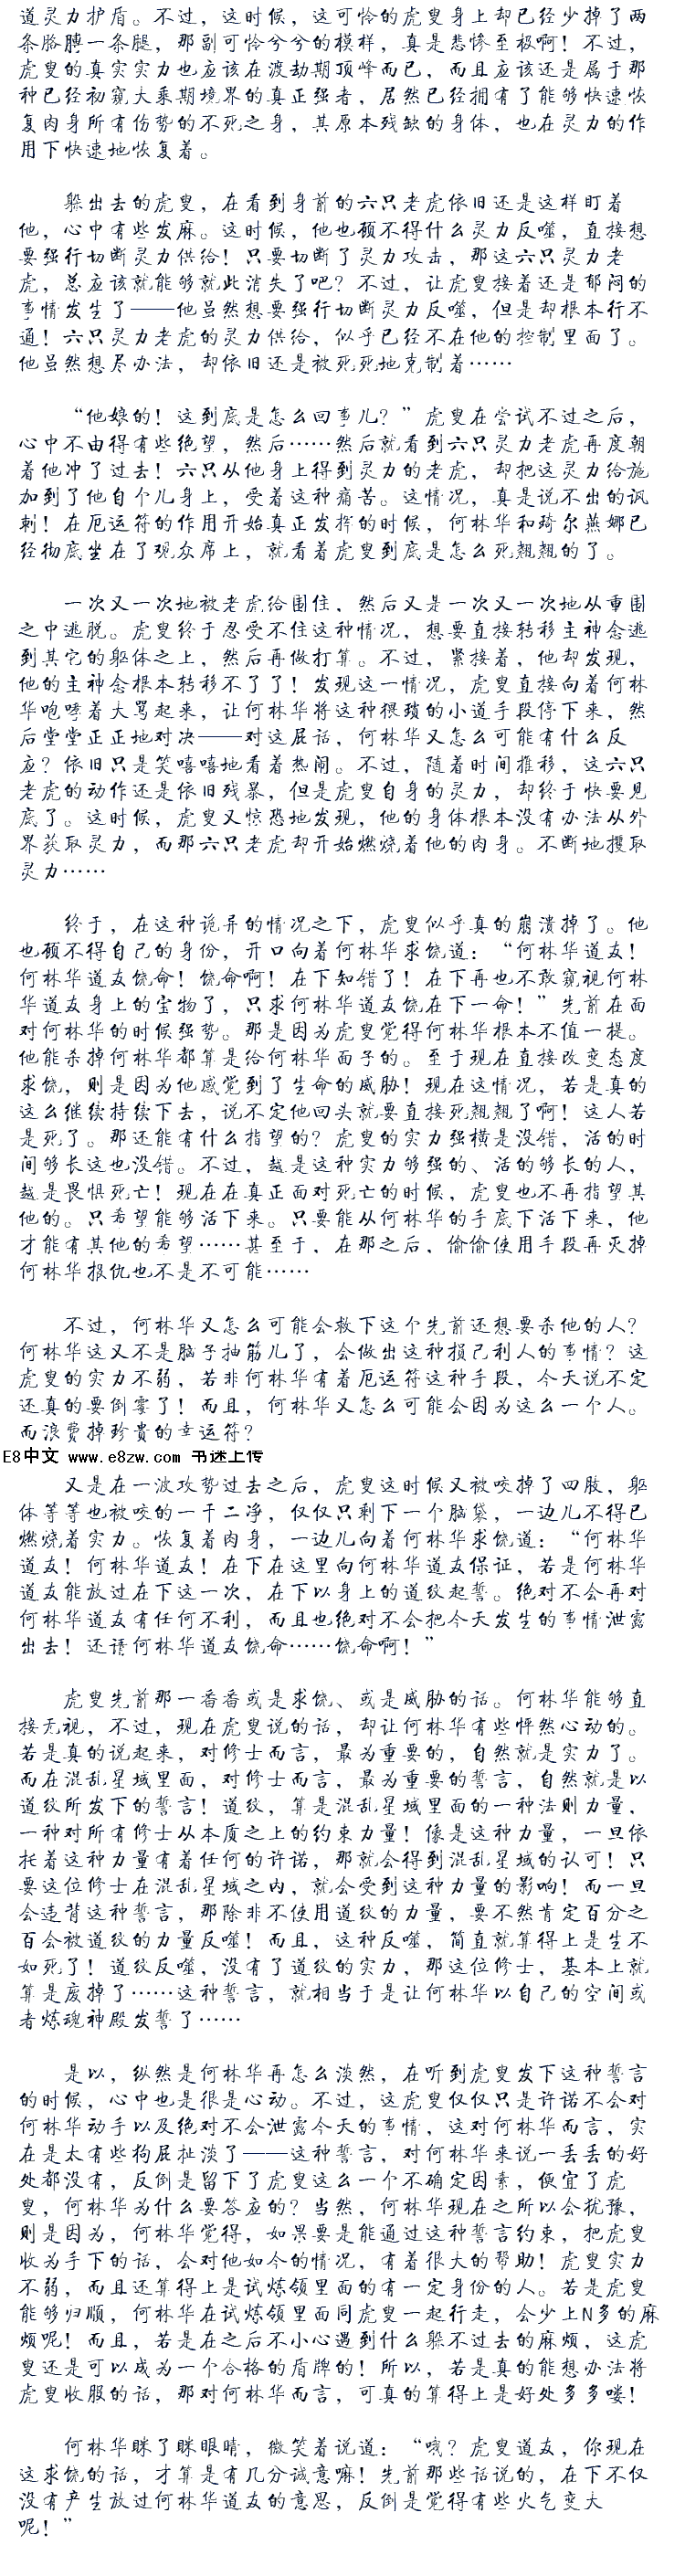 道灵力护盾。不过，这时候，这可怜的虎叟身上却已经少掉了两
条胳膊一条腿，那副可怜兮兮的模样，真是悲惨至极啊！不过，
虎叟的真实实力也应该在渡劫期顶峰而已，而且应该还是属于那
种已经初窥大乘期境界的真正强者，居然已经拥有了能够快速恢
复肉身所有伤势的不死之身，其原本残缺的身体，也在灵力的作
用下快速地恢复着。
躲出去的虎叟，在看到身前的六只老虎依旧还是这样盯着
他，心中有些发麻。这时候，他也顾不得什么灵力反噬，直接想
要强行切断灵力供给！只要切断了灵力攻击，那这六只灵力老
虎，总应该就能够就此消失了吧？不过，让虎叟接着还是郁闷的
事情发生了——他虽然想要强行切断灵力反噬，但是却根本行不
通！六只灵力老虎的灵力供给，似乎已经不在他的控制里面了。
他虽然想尽办法，却依旧还是被死死地克制着……
“他娘的！这到底是怎么回事儿？”虎叟在尝试不过之后，
心中不由得有些绝望，然后……然后就看到六只灵力老虎再度朝
着他冲了过去！六只从他身上得到灵力的老虎，却把这灵力给施
加到了他自个儿身上，受着这种痛苦。这情况，真是说不出的讽
刺！在厄运符的作用开始真正发挥的时候，何林华和琦尔燕娜已
经彻底坐在了观众席上，就看着虎叟到底是怎么死翘翘的了。
一次又一次地被老虎给围住，然后又是一次又一次地从重围
之中逃脱。虎叟终于忍受不住这种情况，想要直接转移主神念逃
到其它的躯体之上，然后再做打算。不过，紧接着，他却发现，
他的主神念根本转移不了了！发现这一情况，虎叟直接向着何林
华咆哮着大骂起来，让何林华将这种猥琐的小道手段停下来，然
后堂堂正正地对决——对这屁话，何林华又怎么可能有什么反
应？依旧只是笑嘻嘻地看着热闹。不过，随着时间推移，这六只
老虎的动作还是依旧残暴，但是虎叟自身的灵力，却终于快要见
底了。这时候，虎叟又惊恐地发现，他的身体根本没有办法从外
界获取灵力，而那六只老虎却开始燃烧着他的肉身。不断地攫取
灵力……
终于，在这种诡异的情况之下，虎叟似乎真的崩溃掉了。他
也顾不得自己的身份，开口向着何林华求饶道：“何林华道友！
何林华道友饶命！饶命啊！在下知错了！在下再也不敢窥视何林
华道友身上的宝物了，只求何林华道友饶在下一命！”先前在面
对何林华的时候强势。那是因为虎叟觉得何林华根本不值一提。
他能杀掉何林华都算是给何林华面子的。至于现在直接改变态度
求饶，则是因为他感觉到了生命的威胁！现在这情况，若是真的
这么继续持续下去，说不定他回头就要直接死翘翘了啊！这人若
是死了。那还能有什么指望的？虎叟的实力强横是没错，活的时
间够长这也没错。不过，越是这种实力够强的、活的够长的人，
越是畏惧死亡！现在在真正面对死亡的时候，虎叟也不再指望其
他的。只希望能够活下来。只要能从何林华的手底下活下来，他
才能有其他的希望……甚至于，在那之后，偷偷使用手段再灭掉
何林华报仇也不是不可能……
不过，何林华又怎么可能会救下这个先前还想要杀他的人？
何林华这又不是脑子抽筋儿了，会做出这种损己利人的事情？这
虎叟的实力不弱，若非何林华有着厄运符这种手段，今天说不定
还真的要倒霉了！而且，何林华又怎么可能会因为这么一个人。
而浪费掉珍贵的幸运符？
E8中文 www.e8zw.com 书迷上传
又是在一波攻势过去之后，虎叟这时候又被咬掉了四肢，躯
体等等也被咬的一干二净，仅仅只剩下一个脑袋，一边儿不得已
燃烧着实力。恢复着肉身，一边儿向着何林华求饶道：“何林华
道友！何林华道友！在下在这里向何林华道友保证，若是何林华
道友能放过在下这一次，在下以身上的道纹起誓。绝对不会再对
何林华道友有任何不利，而且也绝对不会把今天发生的事情泄露
出去！还请何林华道友饶命……饶命啊！”
虎叟先前那一番番或是求饶、或是威胁的话。何林华能够直
接无视，不过，现在虎叟说的话，却让何林华有些怦然心动的。
若是真的说起来，对修士而言，最为重要的，自然就是实力了。
而在混乱星域里面，对修士而言，最为重要的誓言，自然就是以
道纹所发下的誓言！道纹，算是混乱星域里面的一种法则力量，
一种对所有修士从本质之上的约束力量！像是这种力量，一旦依
托着这种力量有着任何的许诺，那就会得到混乱星域的认可！只
要这位修士在混乱星域之内，就会受到这种力量的影响！而一旦
会违背这种誓言，那除非不使用道纹的力量，要不然肯定百分之
百会被道纹的力量反噬！而且，这种反噬，简直就算得上是生不
如死了！道纹反噬，没有了道纹的实力，那这位修士，基本上就
算是废掉了……这种誓言，就相当于是让何林华以自己的空间或
者炼魂神殿发誓了……
是以，纵然是何林华再怎么淡然，在听到虎叟发下这种誓言
的时候，心中也是很是心动。不过，这虎叟仅仅只是许诺不会对
何林华动手以及绝对不会泄露今天的事情，这对何林华而言，实
在是太有些狗屁扯淡了——这种誓言，对何林华来说一丢丢的好
处都没有，反倒是留下了虎叟这么一个不确定因素，便宜了虎
叟，何林华为什么要答应的？当然，何林华现在之所以会犹豫，
则是因为，何林华觉得，如果要是能通过这种誓言约束，把虎叟
收为手下的话，会对他如今的情况，有着很大的帮助！虎叟实力
不弱，而且还算得上是试炼领里面的有一定身份的人。若是虎叟
能够归顺，何林华在试炼领里面同虎叟一起行走，会少上N多的麻
烦呢！而且，若是在之后不小心遇到什么躲不过去的麻烦，这虎
叟还是可以成为一个合格的盾牌的！所以，若是真的能想办法将
虎叟收服的话，那对何林华而言，可真的算得上是好处多多喽！
何林华眯了眯眼睛，微笑着说道：“哦？虎叟道友，你现在
这求饶的话，才算是有几分诚意嘛！先前那些话说的，在下不仅
没有产生放过何林华道友的意思，反倒是觉得有些火气变大
呢！”